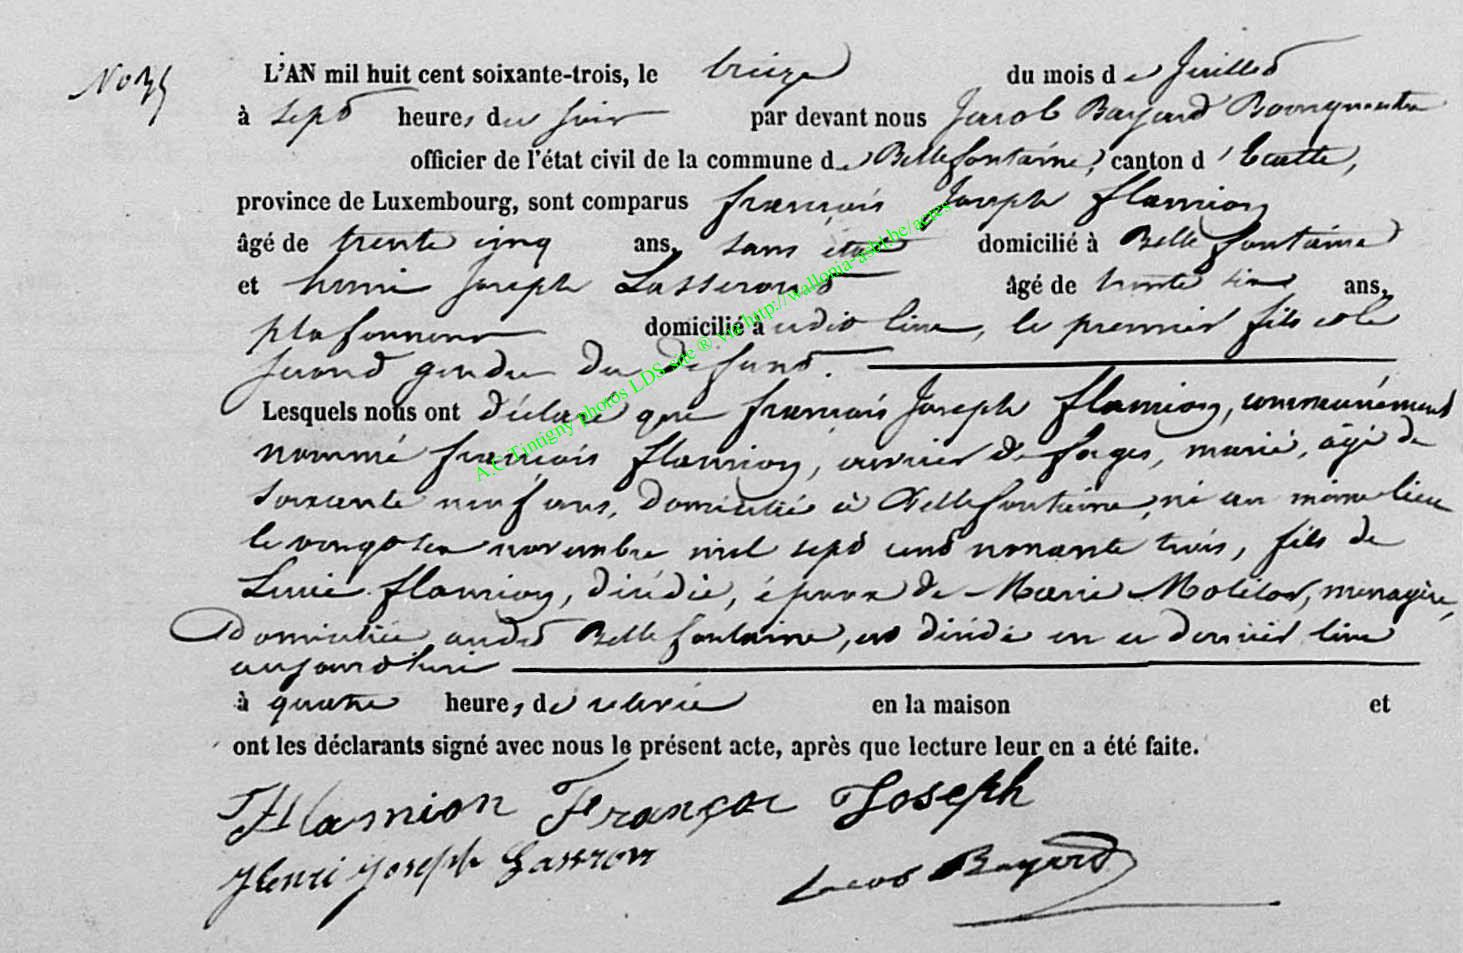 No 35
L'AN mil huit cent soixante-trois, le treize du mois de Juillet
à sept heures du soir par devant nous Jacob Bayard Bourgmestre
officier de l'état civil de la commune de Bellefontaine, canton d'Etalle,
province de Luxembourg, sont comparus françois Joseph flamion
âgé de trente cinq ans, sans état domicilié à Bellefontaine
et henri Joseph Lasseront âgé de trente six ans,
plafonneur domicilié à udit lieu, le premier fils et le
second gendre du défunt.
Lesquels nous ont déclaré que françois Joseph flamion, communément
nommé françois flamion, ouvrier de forges, marié, âgé de
soixante neuf ans, domicilié à Bellefontaine, né au même lieu
le novembre mil sept cent nonante trois, fils de
flamion, décédée, époux de Marie Molitor, menagère,
Domiciliée audit Bellefontaine, est décédé en ce dernier lieu
aujourdhui
à quatre heures de relevée en la maison et
ont les déclarants signé avec nous le présent acte, après que lecture leur en a été faite.
Flamion François Joseph
Henri Joseph Lasseron
Jacob Bayard
A.C. Tintigny photos LDS site ® via http://wallonia-asbl.be/actes